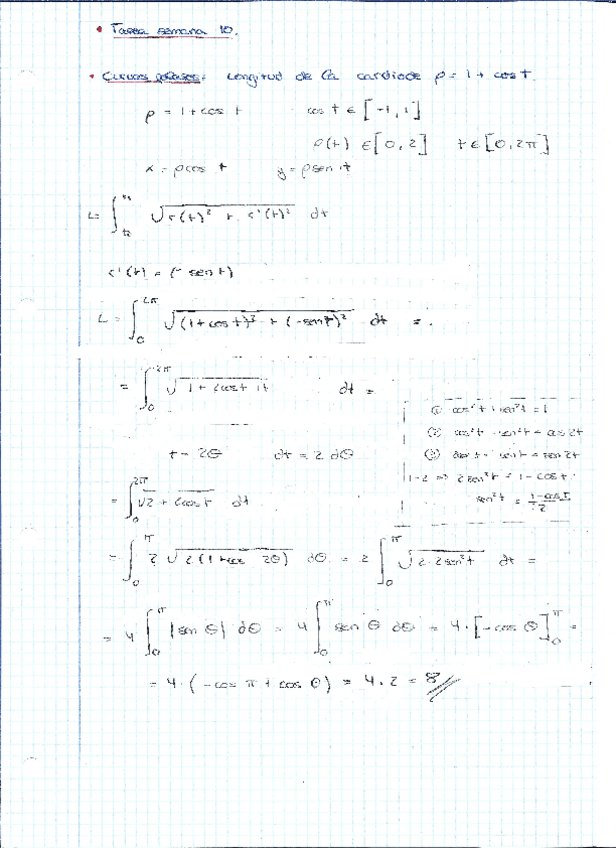 • Tarea semana 10.
• Curvas polares: Longitud de la cardiode ρ = 1 + cos t.
ρ = 1 + cos t cos t ∈ [-1, 1]
ρ(t) ∈ [0, 2] t ∈ [0, 2π]
x = ρ cos t y = ρ sen t
L = ∫ √(r(t)² + r'(t)²) dt
r'(t) = (- sen t)
L = ∫₀^2π √((1+cos t)² + (-sen t)²) dt =
= ∫₀^2π √(1 + cos t dt =
① cos²t + sen²t = 1
② cos²t - sen²t = cos 2t
t = 2θ dt = 2 dθ
③ sen 2t
1-2 ⇒ 2 sen²t = 1 - cos t
= ∫₀^2π √2 + cos t dt
sen²t = (1 - cos t)/2
= ∫₀^π 2 √(2(1 + cos 2θ)) dθ = 2 ∫₀^π √(2·2sen²t) dt =
= 4 ∫₀^π |sen θ| dθ = 4 ∫₀^π sen θ dθ = 4·[-cos θ]₀^π =
= 4·(-cos π + cos 0) = 4·2 = 8//